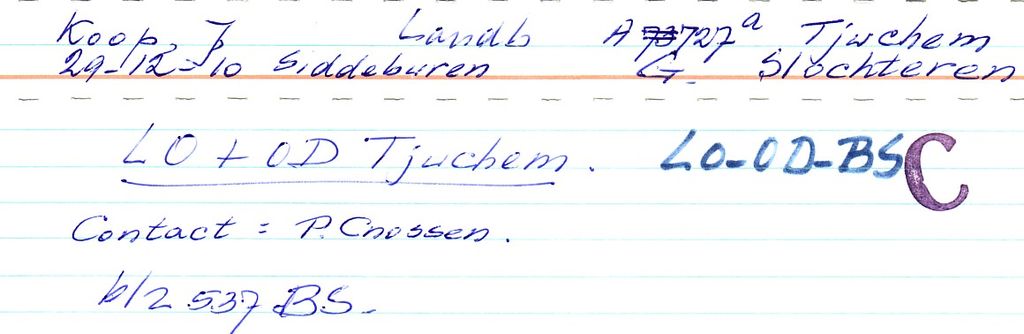 Koop, J Landb A 727ᵃ Tjuchem
29-12-10 Siddeburen G. Slochteren
LO + OD Tjuchem. LO-OD-BS C
Contact = P. Cnossen.
blz 537 BS.